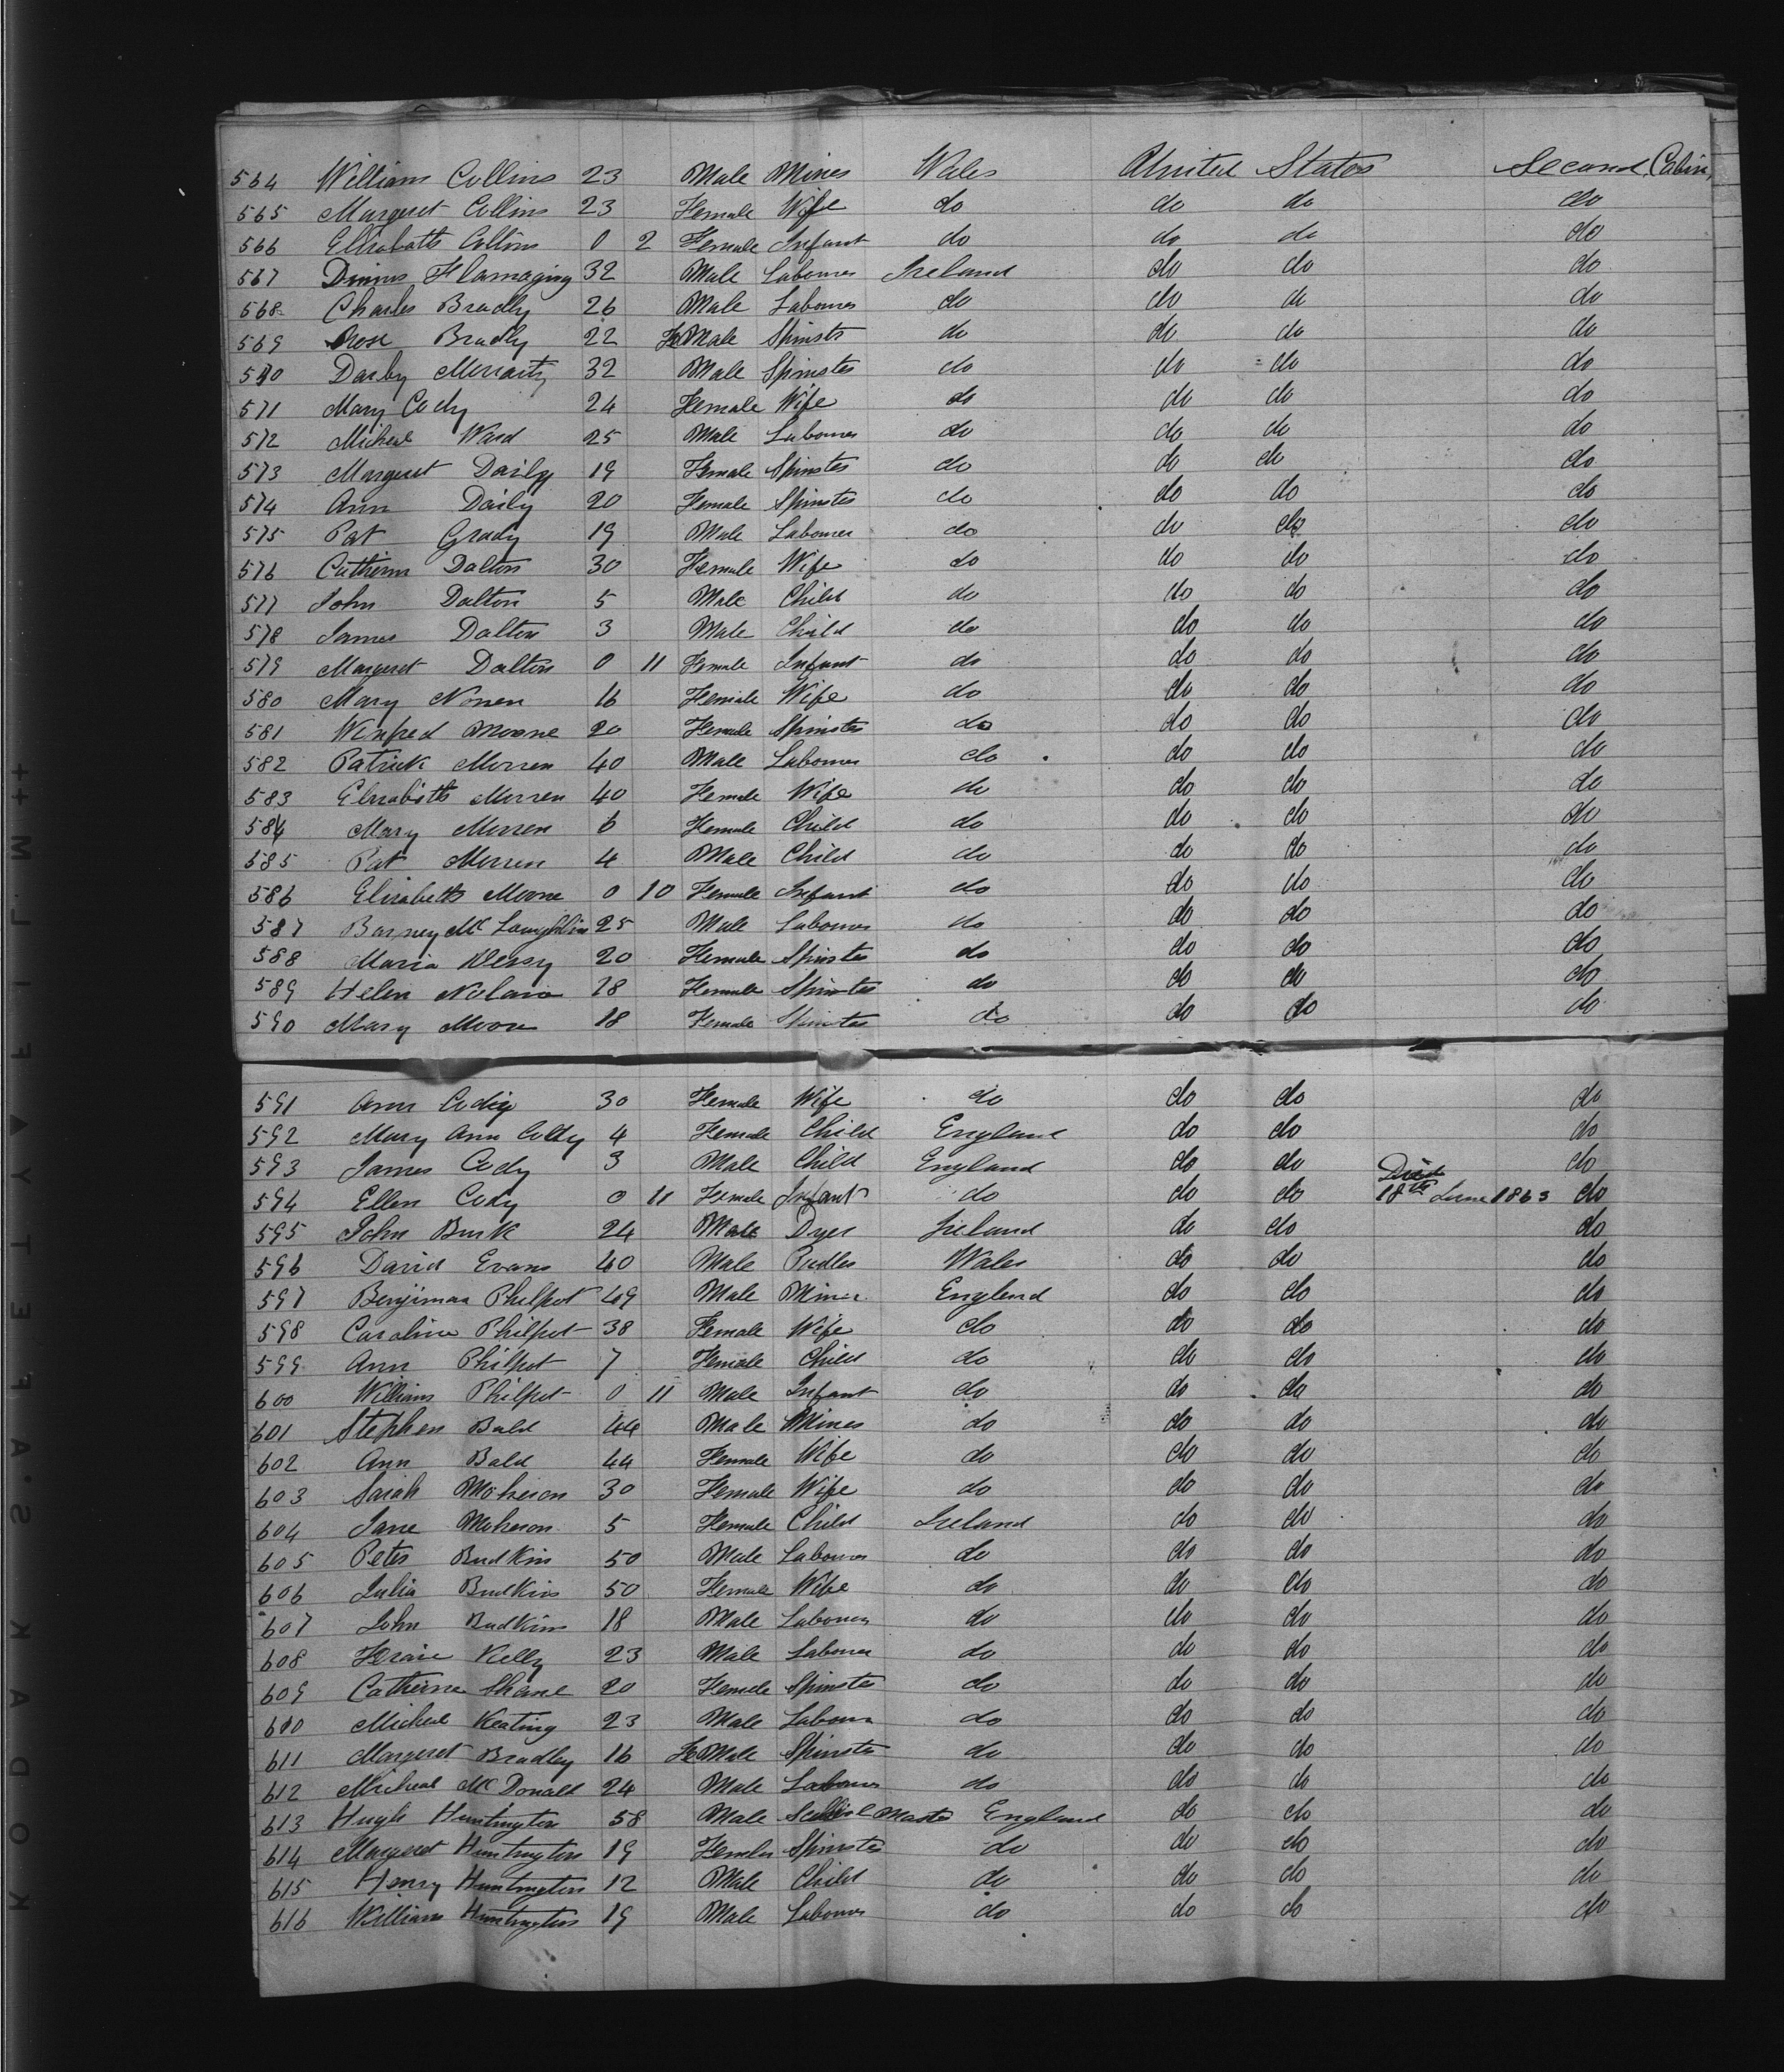 564 William Collins 23 Male Miner Wales United States Second Cabin
565 Margeret Collins 23 Female Wife do do do do
566 Elisabeth Collins 0 2 Female Infant do do do do
567 32 Male Labourer Ireland do do do
568 Charles Bradly 26 Male Labourer do do do do
569 Rose Bradly 22 FeMale Spinstr do do do do
570 Darby Moriarty 32 Male Spinster do do do do
571 Mary Cody 24 Female Wife do do do do
572 Micheal Ward 25 Male Labourer do do do do
573 Margeret Daily 19 Female Spinster do do do do
574 Ann Daily 20 Female Spinster do do do do
575 Pat Grady 19 Male Labourer do do do do
576 Catherin Dalton 30 Female Wife do do do do
577 John Dalton 5 Male Child do do do do
578 James Dalton 3 Male Child do do do do
579 Margeret Dalton 0 11 Female Infant do do do do
580 Mary 16 Female Wife do do do do
581 Winfred Moone 20 Female Spinster do do do do
582 Patrick Morren 40 Male Labourer do do do do
583 Elisabeth Morren 40 Female Wife do do do do
584 Mary Morren 6 Female Child do do do do
585 Pat Morren 4 Male Child do do do do
586 Elisabeth Moone 0 10 Female Infant do do do do
587 Barney Mc Laughlin 25 Male Labourer do do do do
588 Maria 20 Female Spinster do do do do
589 Helen Nolan 18 Female Spinster do do do do
590 Mary Moore 18 Female Spinster do do do do
591 Ann 30 Female Wife do do do do
592 Mary Ann 4 Female Child England do do do
593 James Cody 3 Male Child England do do do
594 Ellen Cody 0 11 Female Infant do do do Died 18th June 1863 do
595 John Burk 24 Male Dyer Ireland do do do
596 David Evans 40 Male Pudler Wales do do do
597 Benjiman Philpot 49 Male Miner England do do do
598 Caroline Philpot 38 Female Wife do do do do
599 Ann Philpot 7 Female Child do do do do
600 William Philpot 0 11 Male Infant do do do do
601 Stephen Bald 44 Male Miner do do do do
602 Ann Bald 44 Female Wife do do do do
603 Sarah 30 Female Wife do do do do
604 Jane 5 Female Child Ireland do do do
605 Peter Budkin 50 Male Labourer do do do do
606 Julia Budkin 50 Female Wife do do do do
607 John Budkin 18 Male Labourer do do do do
608 Kelly 23 Male Labourer do do do do
609 Catherine Shane 20 Female Spinster do do do do
610 Micheal Keating 23 Male Labourer do do do do
611 Margeret Bradley 16 FeMale Spinster do do do do
612 Micheal Mc Donald 24 Male Labourer do do do do
613 Hugh Huntington 58 Male School Master England do do do
614 Margeret Huntington 19 Female Spinster do do do do
615 Henry Huntington 12 Male Child do do do do
616 William Huntington 19 Male Labourer do do do do
KODAK·SAFETY▲FILM